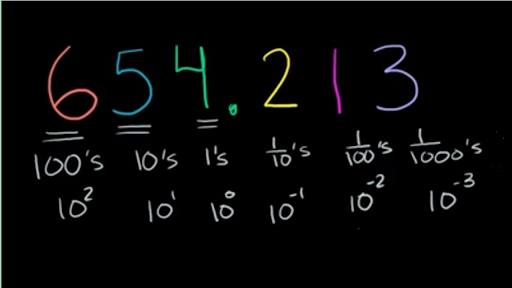 654.213
100's 10's 1's 1/10's 1/100's 1/1000's
10² 10¹ 10⁰ 10⁻¹ 10⁻² 10⁻³